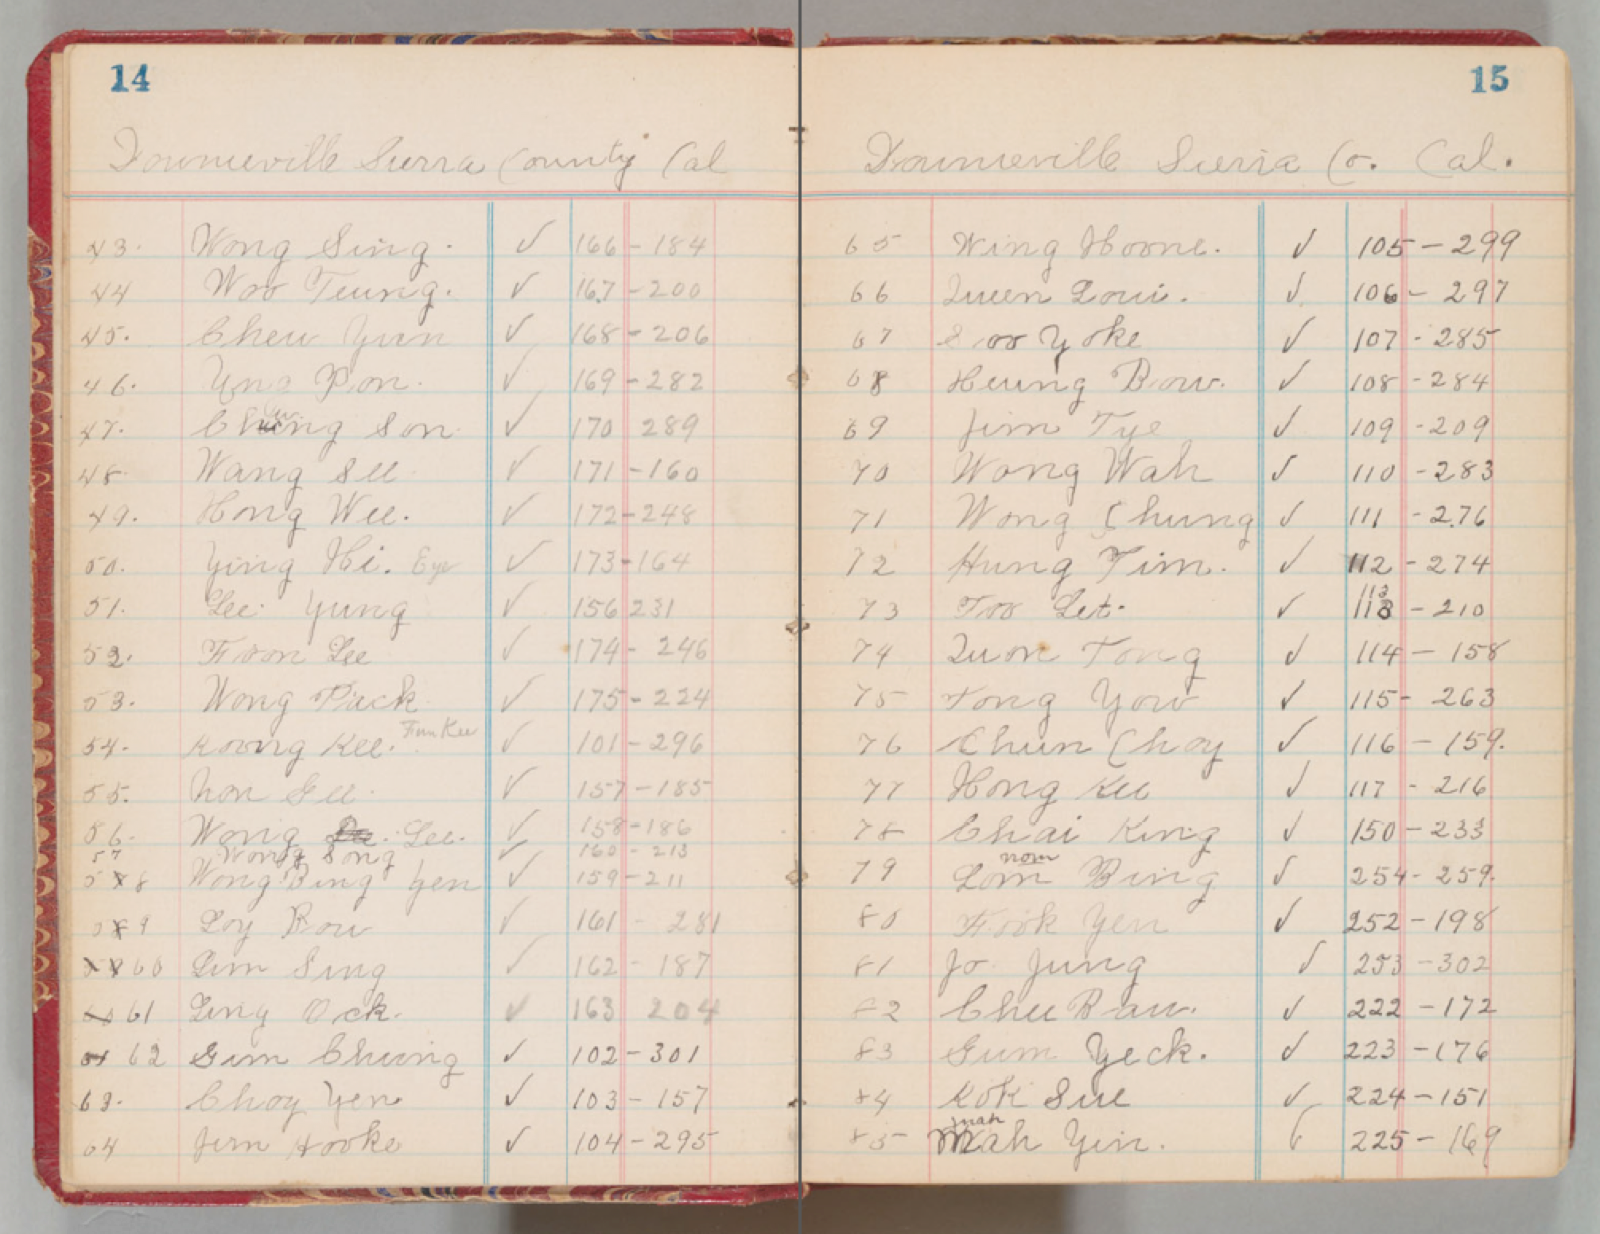 14
Downieville Sierra County Cal
43. Wong Sing. ✓ 166 - 184
44 Woo Teung. ✓ 167 - 200
45. Chew Yuen ✓ 168 - 206
46. Yng Pon. ✓ 169 - 282
47. Chung Son ✓ 170 289
48 Wang See ✓ 171 - 160
49. Hong Wee. ✓ 172 - 248
50. Ying Hi. Eye ✓ 173 - 164
51. Lee Yung ✓ 156 231
52. Foon Lee ✓ 174 - 246
53. Wong Pack ✓ 175 - 224
54. Koong Kee. Fun Kee ✓ 101 - 296
55. Non Gee ✓ 157 - 185
56. Wong Lee. ✓ 158 - 186
57 Wong Song ✓ 160 - 213
58 Wong Bing Yen ✓ 159 - 211
59 Loy Bow ✓ 161 - 281
60 Lim Sing ✓ 162 - 187
61 Ling Ock. ✓ 163 204
62 Gim Chung ✓ 102 - 301
63. Choy Yen ✓ 103 - 157
64 Jim Hooke ✓ 104 - 295
15
Downieville Sierra Co. Cal.
65 Wing Hoone. ✓ 105 - 299
66 Quen Loui. ✓ 106 - 297
67 Soo Yoke ✓ 107 - 285
68 Heung Bow. ✓ 108 - 284
69 Jim Tye ✓ 109 - 209
70 Wong Wah ✓ 110 - 283
71 Wong Chung ✓ 111 - 276
72 Hung Tim. ✓ 112 - 274
73 Too Let. ✓ 113 113 - 210
74 Quon Tong ✓ 114 - 158
75 Tong Yow ✓ 115 - 263
76 Chun Choy ✓ 116 - 159.
77 Hong Kee ✓ 117 - 216
78 Chai King ✓ 150 - 233
79 Lom nom Bing ✓ 254 - 259.
80 Fook Yen ✓ 252 - 198
81 Jo Jung ✓ 253 - 302
82 Chee Bau. ✓ 222 - 172
83 Gum Yeck. ✓ 223 - 176
84 Kok Sue ✓ 224 - 151
85 Mah mah Yin. ✓ 225 - 169